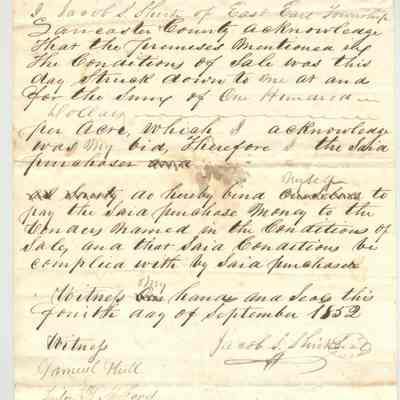 I Jacob S. Shirk of East Earl Township
Lancaster County acknowledge
that the Premises Mentioned in
the Conditions of Sale was this
day Struck down to me at and
for the Sum of One Hundred
Dollars
per Acre, Which I acknowledge
was My bid, Therefore I the Said
purchaser
Myself
do hereby bind to
pay the Said purchase Money to the
Vendors Named in the Conditions of
Sale, and that Said Conditions be
complied with by Said purchaser
my
Witness hand and Seal this
fourth day of September 1852
Witness Jacob S. Shirk
Samuel Hull